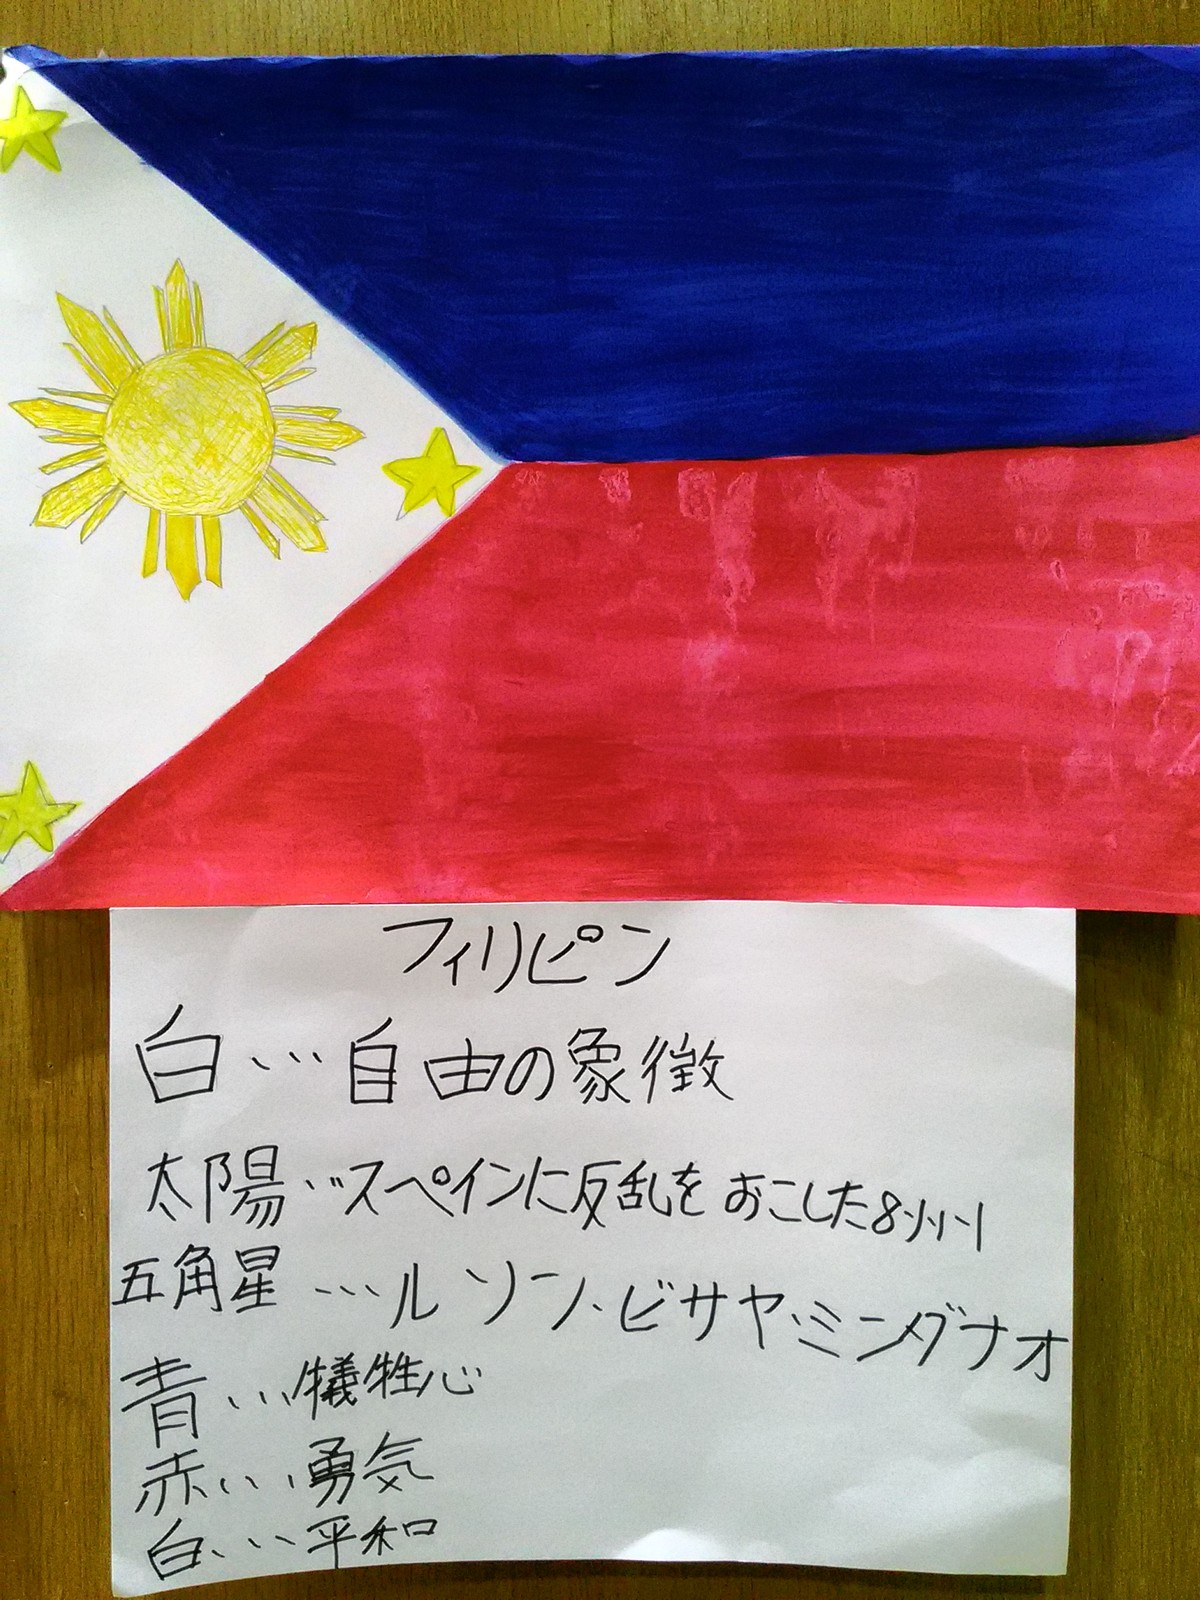 フィリピン
白…自由の象徴
太陽…スペインに反乱をおこした8州
五角星…ルソン・ビサヤ・ミンダナオ
青…犠牲心
赤…勇気
白…平和